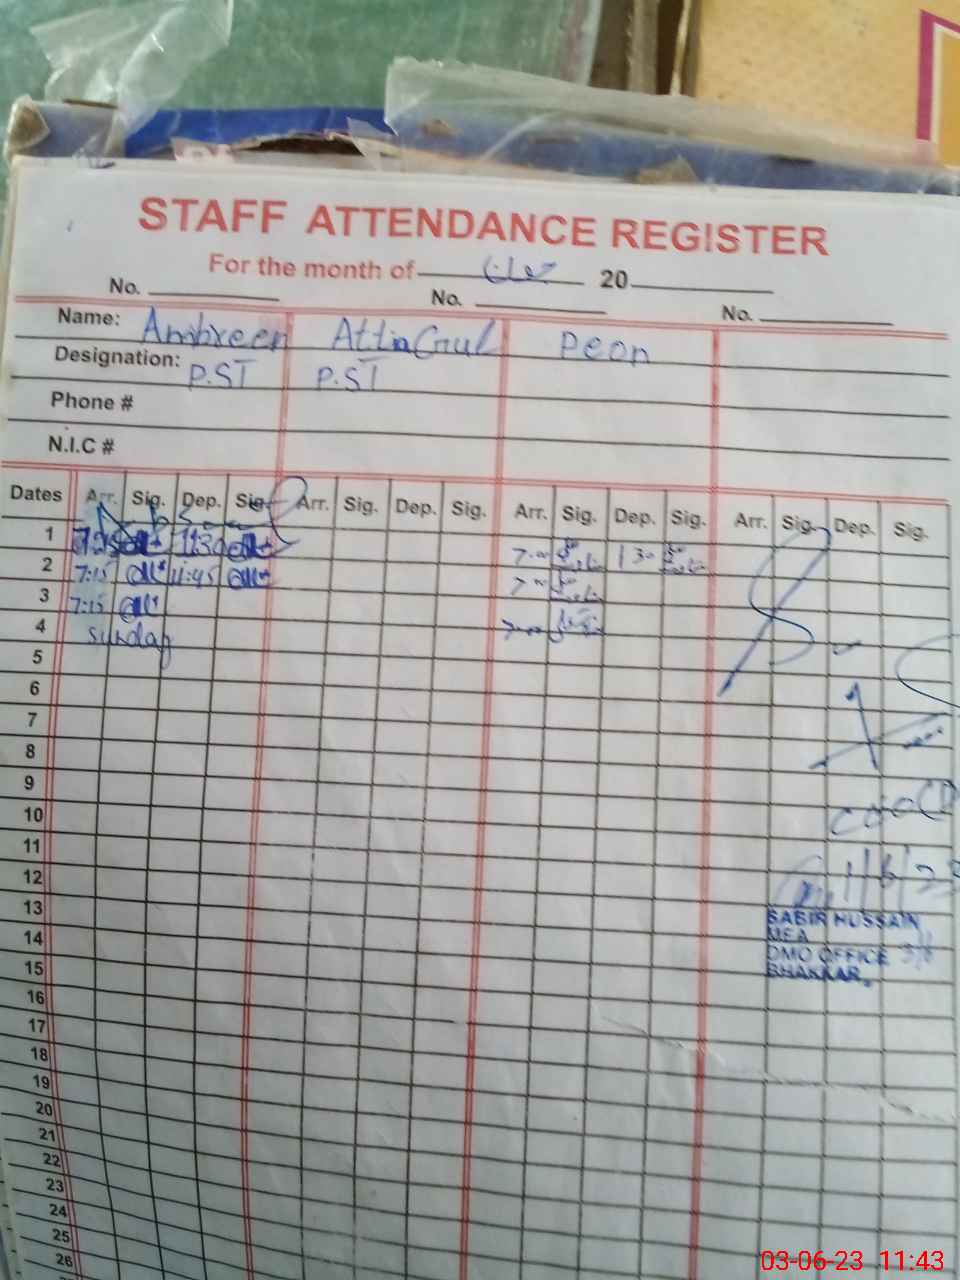 STAFF ATTENDANCE REGISTER
For the month of جون 20
No. No. No.
Name: Ambreen Attia Gul Peon
Designation: P.ST P.ST
Phone #
N.I.C #
Dates Arr. Sig. Dep. Sig. Arr. Sig. Dep. Sig. Arr. Sig. Dep. Sig. Arr. Sig. Dep. Sig.
1 1130 7-00 1 30
2 7:15 11:45 7-00
3 7:15
4 Sunday 7-00
5
6
7
8
9
10
11
12 1/6/23
13 SABIR HUSSAIN
14 MEA
DMO OFFICE 3/6
15 BHAKKAR.
16
17
18
19
20
21
22
23
24
25
26
03-06-23 11:43